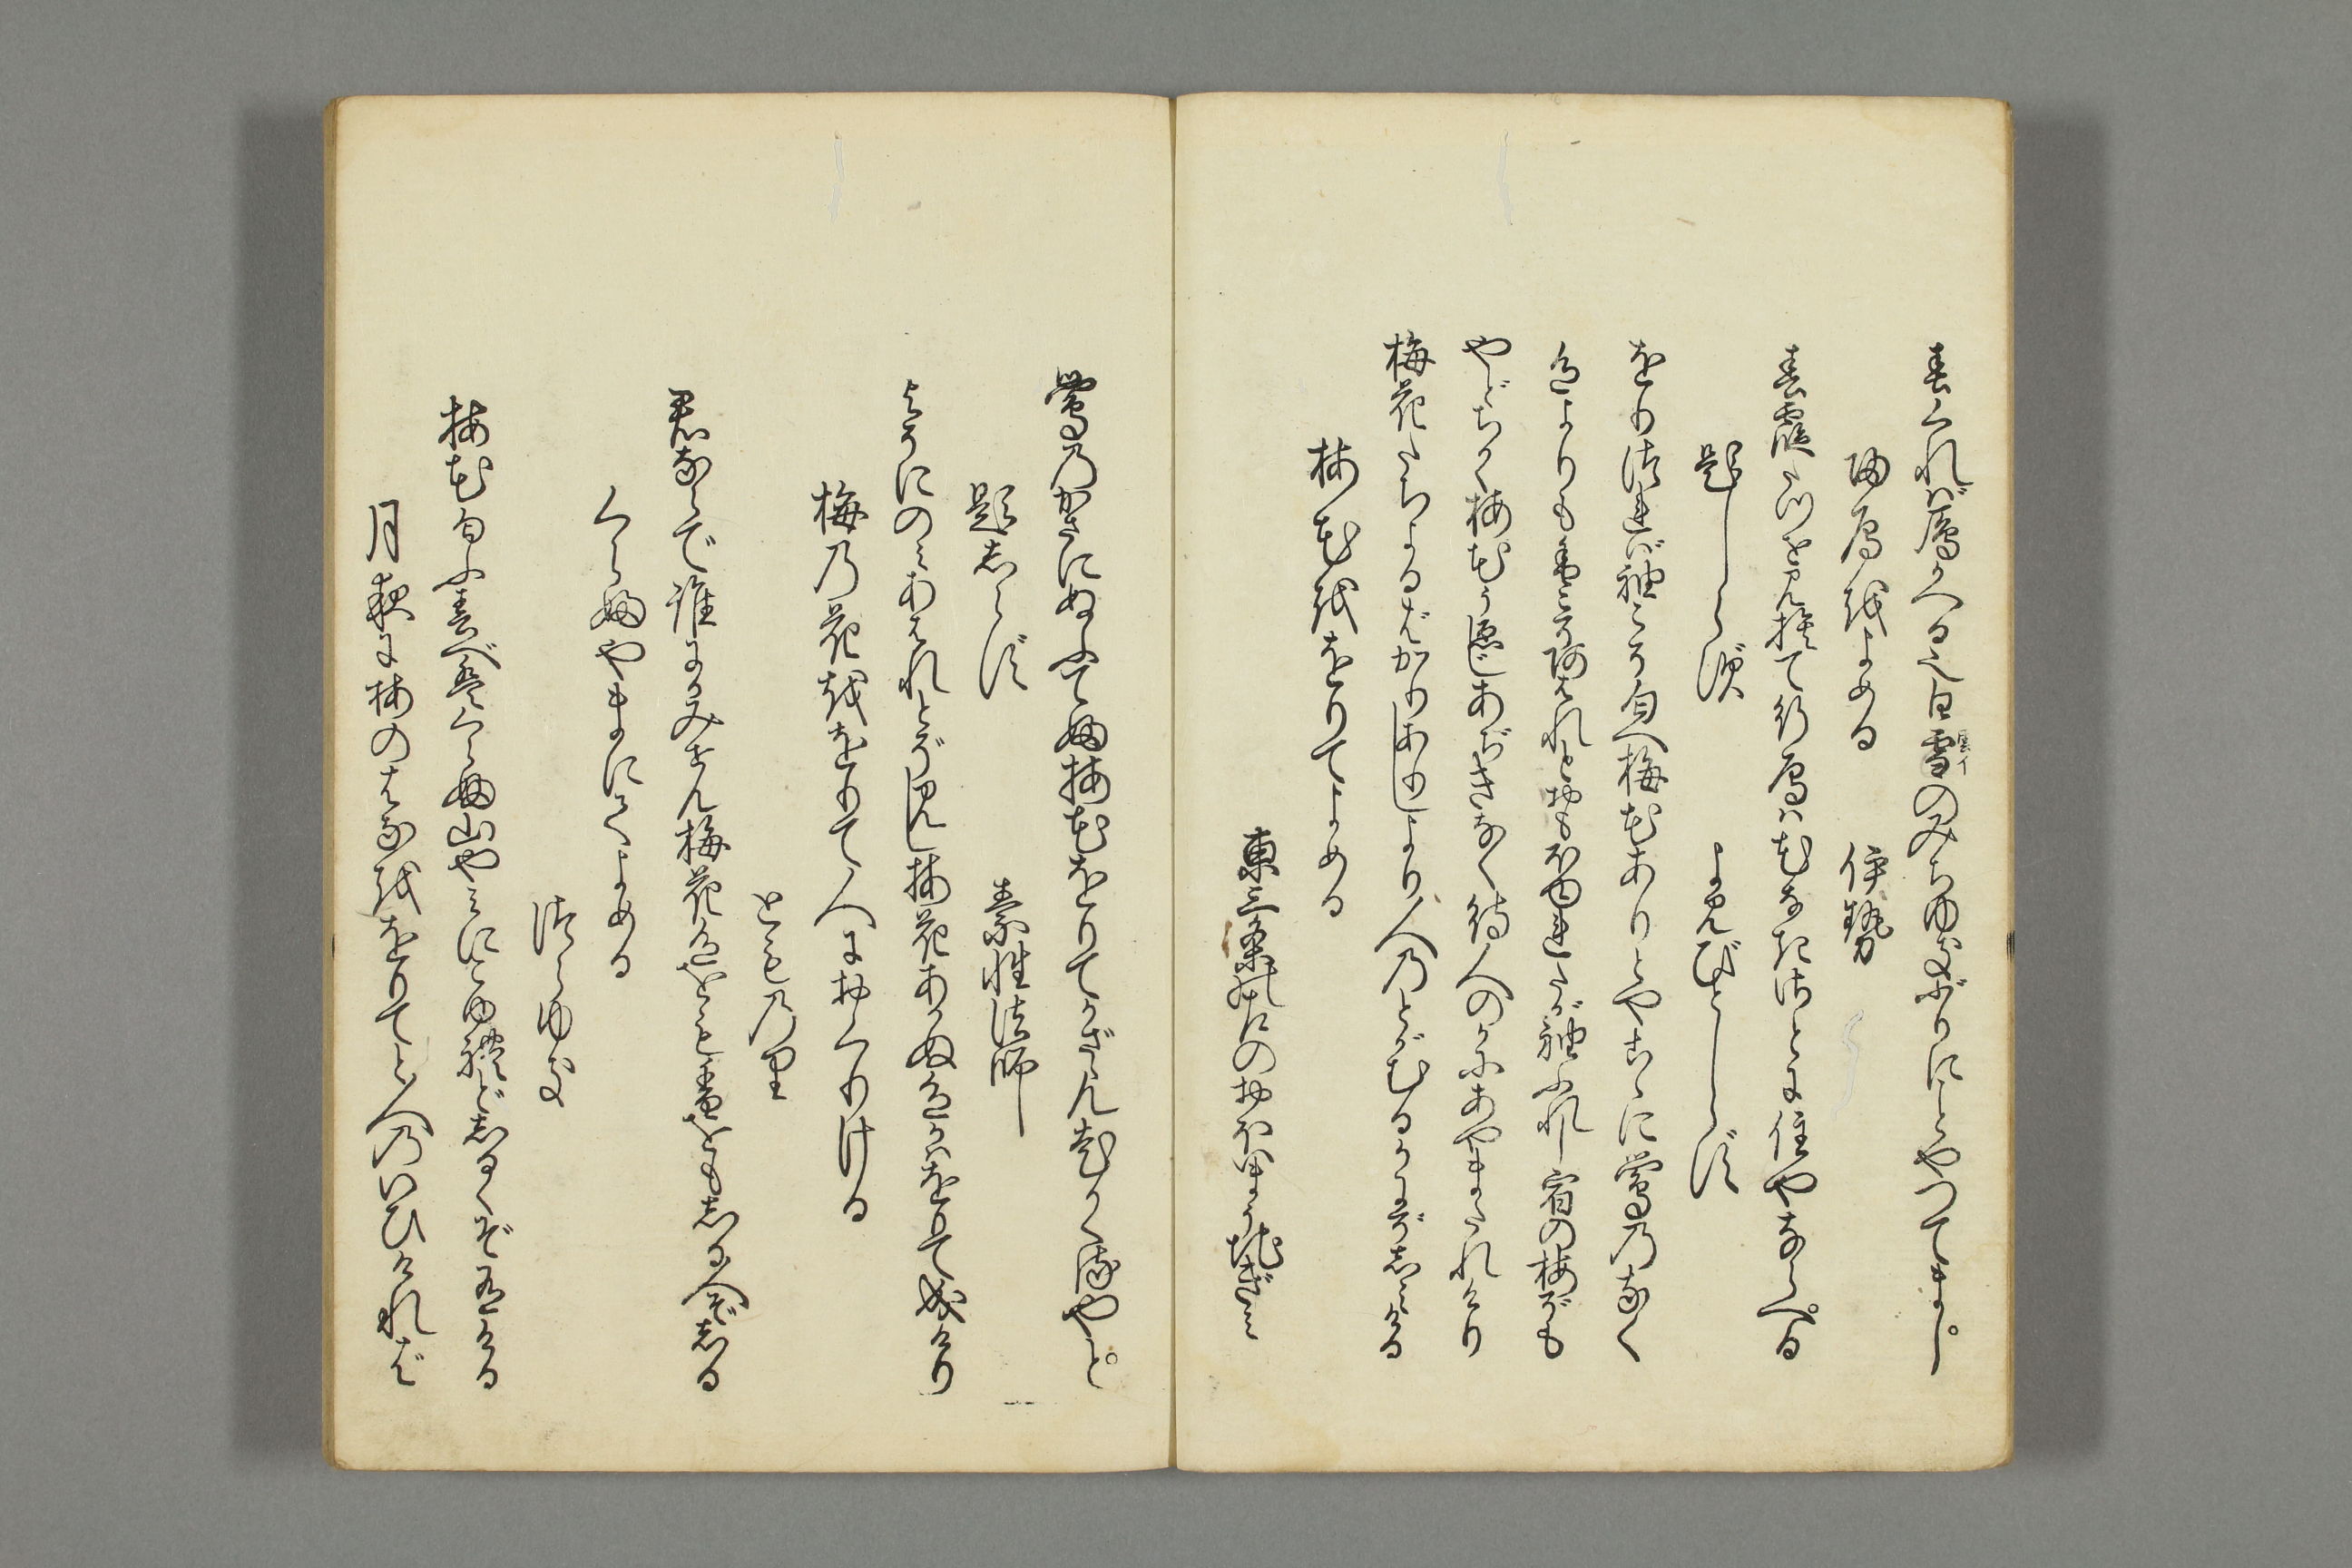 春くれば鴈かへる也白雪のみちゆきぶりにことやつてまし
雲イ
帰鴈を よめる　伊勢
春霞たつを見捨て行鴈は花なきさとに住やならへる
題しらず　よみびとしらず
をりつれば袖こそ匂へ梅花ありとやここに鶯のなく
色よりも香こそあはれとおもほゆれたが袖ふれし宿の梅ぞも
やどちかく梅花うゑじあぢきなく待人のかにあやまたれけり
梅花たちよるばかりありしより人のとがむるかにぞしみける
梅花をりてよめる
東三条の左のおほいまうちぎみ
鶯のかさにぬふてふ梅花をりてかざさん老かくるやと
題しらず　素性法師
よそにのみあはれとぞ見し梅花あかぬ色かはをりて成けり
梅の花ををりて人におくりける
とものり
君ならで誰にかみせん梅花色をもかをもしる人ぞしる
くらぶやまにてよめる
つらゆき
梅花匂ふ春べはくらぶ山やみにこゆれどしるくぞ有ける
月夜に梅のはなををりてと人のいひければ